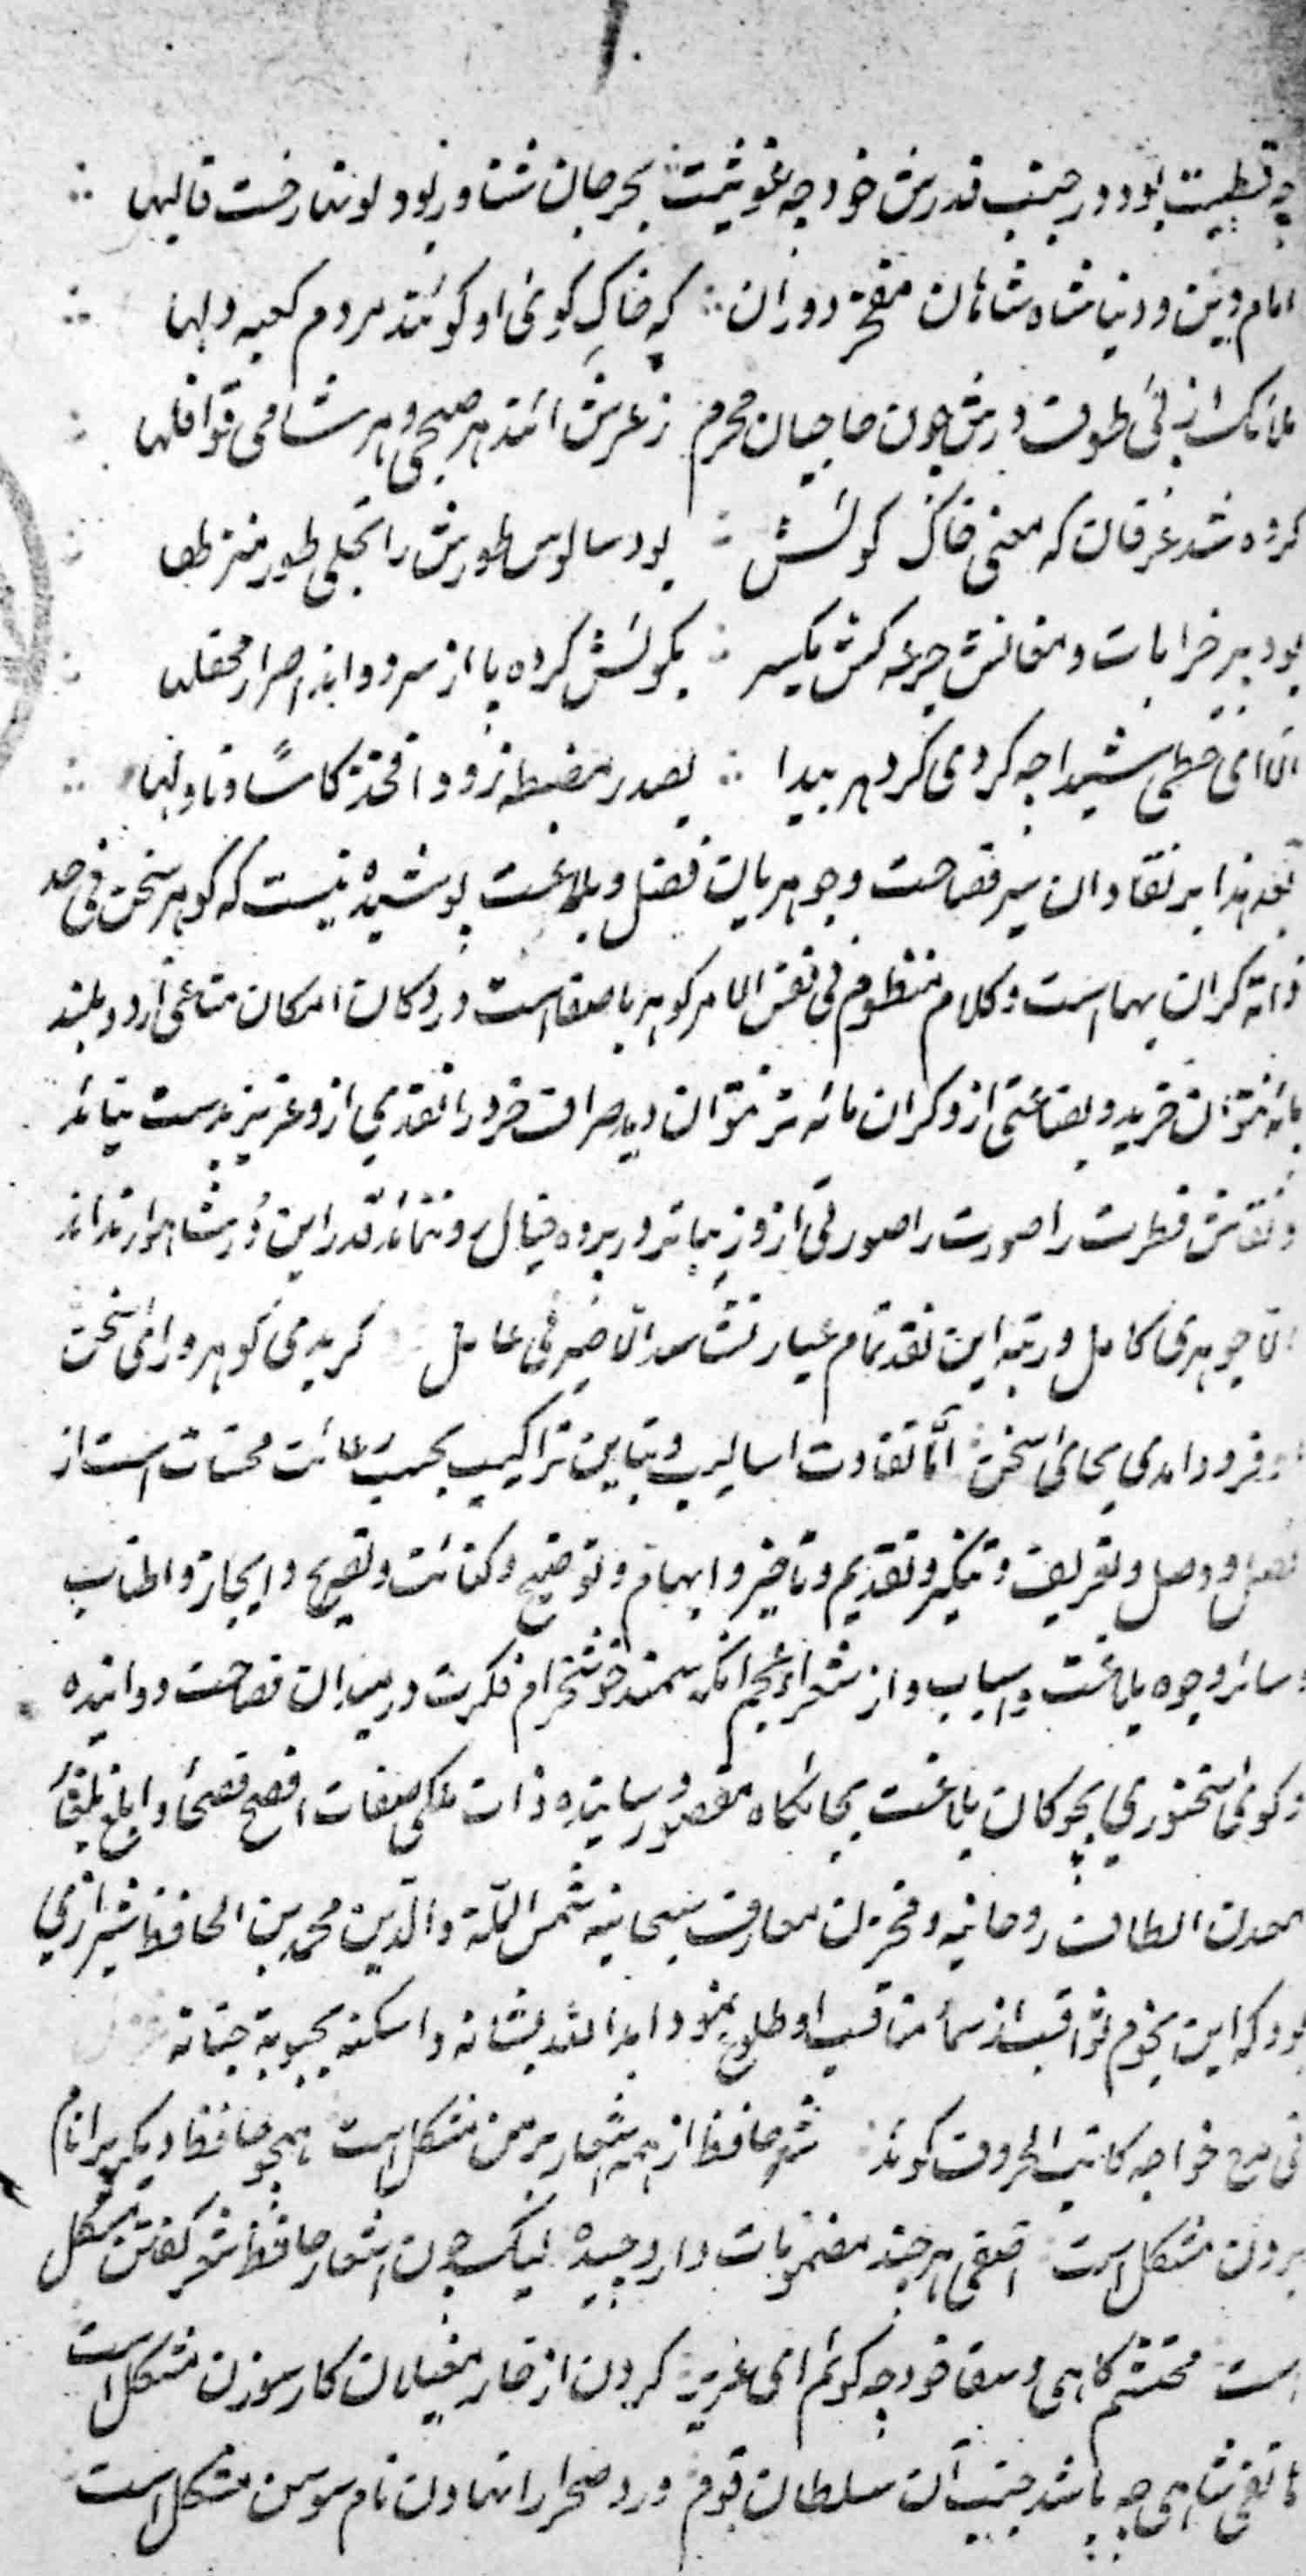 چه قطبیت بود در جنب قدرش خود چه غوثیت بحر جان شناور بود لوتنها رخت قالبها
امام دین و دنیا شاه شاهان مفخر دوران که خاک کوی او گویند مردم کعبه دلها
ملائک از پی طوف درش چون حاجیان محرم ز عرش آیند هر صبحی و هر شامی قوافلها
کروه شد عرفان که معنی خاک کویش بود سالوس طورش را تجلی طور منزلها
بود پیر خرابات و مغانش جرعه کش یکسر بکویش کرده پا از سر دوانند احرار محفلها
الا ای ختمی شیدا چه کردی کرد هر بیدا بصدر مضبطه زود افخذ کاسًا و ناولها
بعد هذا بر نقادان سیر فصاحت و جوهریان فضل و بلاغت پوشیده نیست که گوهر سخن فی حد
ذاته گران بهاست و کلام منظوم فی نفس الامر گوهر باصفاست در دکان امکان متاعی ازو بلند
پایه نتوان خرید و بضاعتی ازو گران مایه تر نتوان دید صراف خرد را نقدی ازو عزیزتر بدست نیاید
و نقاش فطرت را صورت را صورتی ازو زیباتر در پرده خیال رو ننماید قدر این دُر شاهوار نداند
الا جوهری کامل و رتبه این نقد تمام عیار نشناسد الا صیرفی عامل گر بدی گوهر ورای سخن
او فرود آمدی بجای سخن امّا تفاوت اسالیب و تباین تراکیب بحسب رعایت محسنات است از
فصل و وصل و تعریف و تنکیر و تقدیم و تاخیر و ابهام و توضیح و کنایت و تصریح و ایجاز و اطناب
و سائر وجوه بلاغت و اسباب و از شعراء عجم انکه سمند خوشخرام فکرت در میدان فصاحت دوانیده
و گوی سخنوری بچوکان بلاغت بجائگاه مقصود رسانیده ذات ملکی صفات افصح فصحأ و ابلغ بلغأ
معدن الطاف روحانیه و مخزن معارف سبحانیه شمس الملّة والدّین محمد بن الحافظ شیرازی
بود که این نجوم ثواقب از سمأ مناقب او طلوع نمود ابد الله بشانه و اسکنه بحبوبة جنانه
فی مدح خواجه کاتب الحروف گوید شعر حافظ از همه اشعار بر من مشکل است همچو حافظ دیگر پر انام
بردن مشکل است اصفی هر چند مضمونات دارد چیده لیک چون اشعار حافظ شعر گفتن مشکل
است محتشم کاهی و سقا خود چه گویم ای عزیز کردن از خار مغیلان کار سوزن مشکل است
هاتفی شاهی چه باشد جنب آن سلطان قوم ورد صحرا را نهادن نام سوسن مشکل است